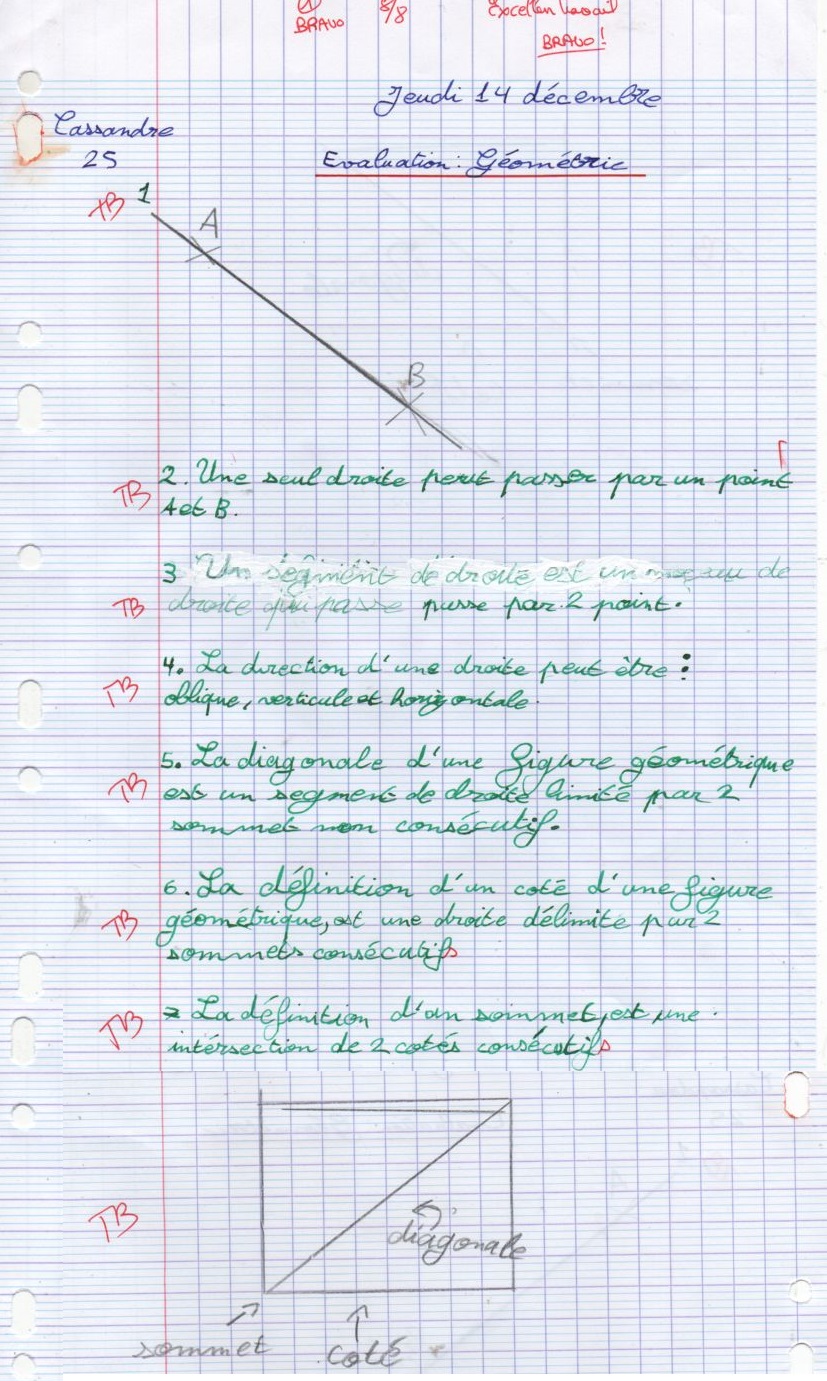 BRAVO 8/8 Excellent travail
BRAVO!
Jeudi 14 décembre
Cassandre
25
Evaluation: Géométrie
TB 1
A
B
2. Une seul droite peut passer par un point
TB A et B.
3 Un segment de droite est un de
TB droite qui passe passe par 2 point.
4. La direction d'une droite peut être :
TB oblique, verticale et horizontale.
5. La diagonale d'une figure géométrique
TB est un segment de droite limité par 2
sommet non consécutif.
6. La définition d'un coté d'une figure
TB géométrique, est une droite délimite par 2
sommets consécutifs
TB 7 La définition d'un sommet, est une
intérsection de 2 cotés consécutifs
TB
diagonale
sommet coté